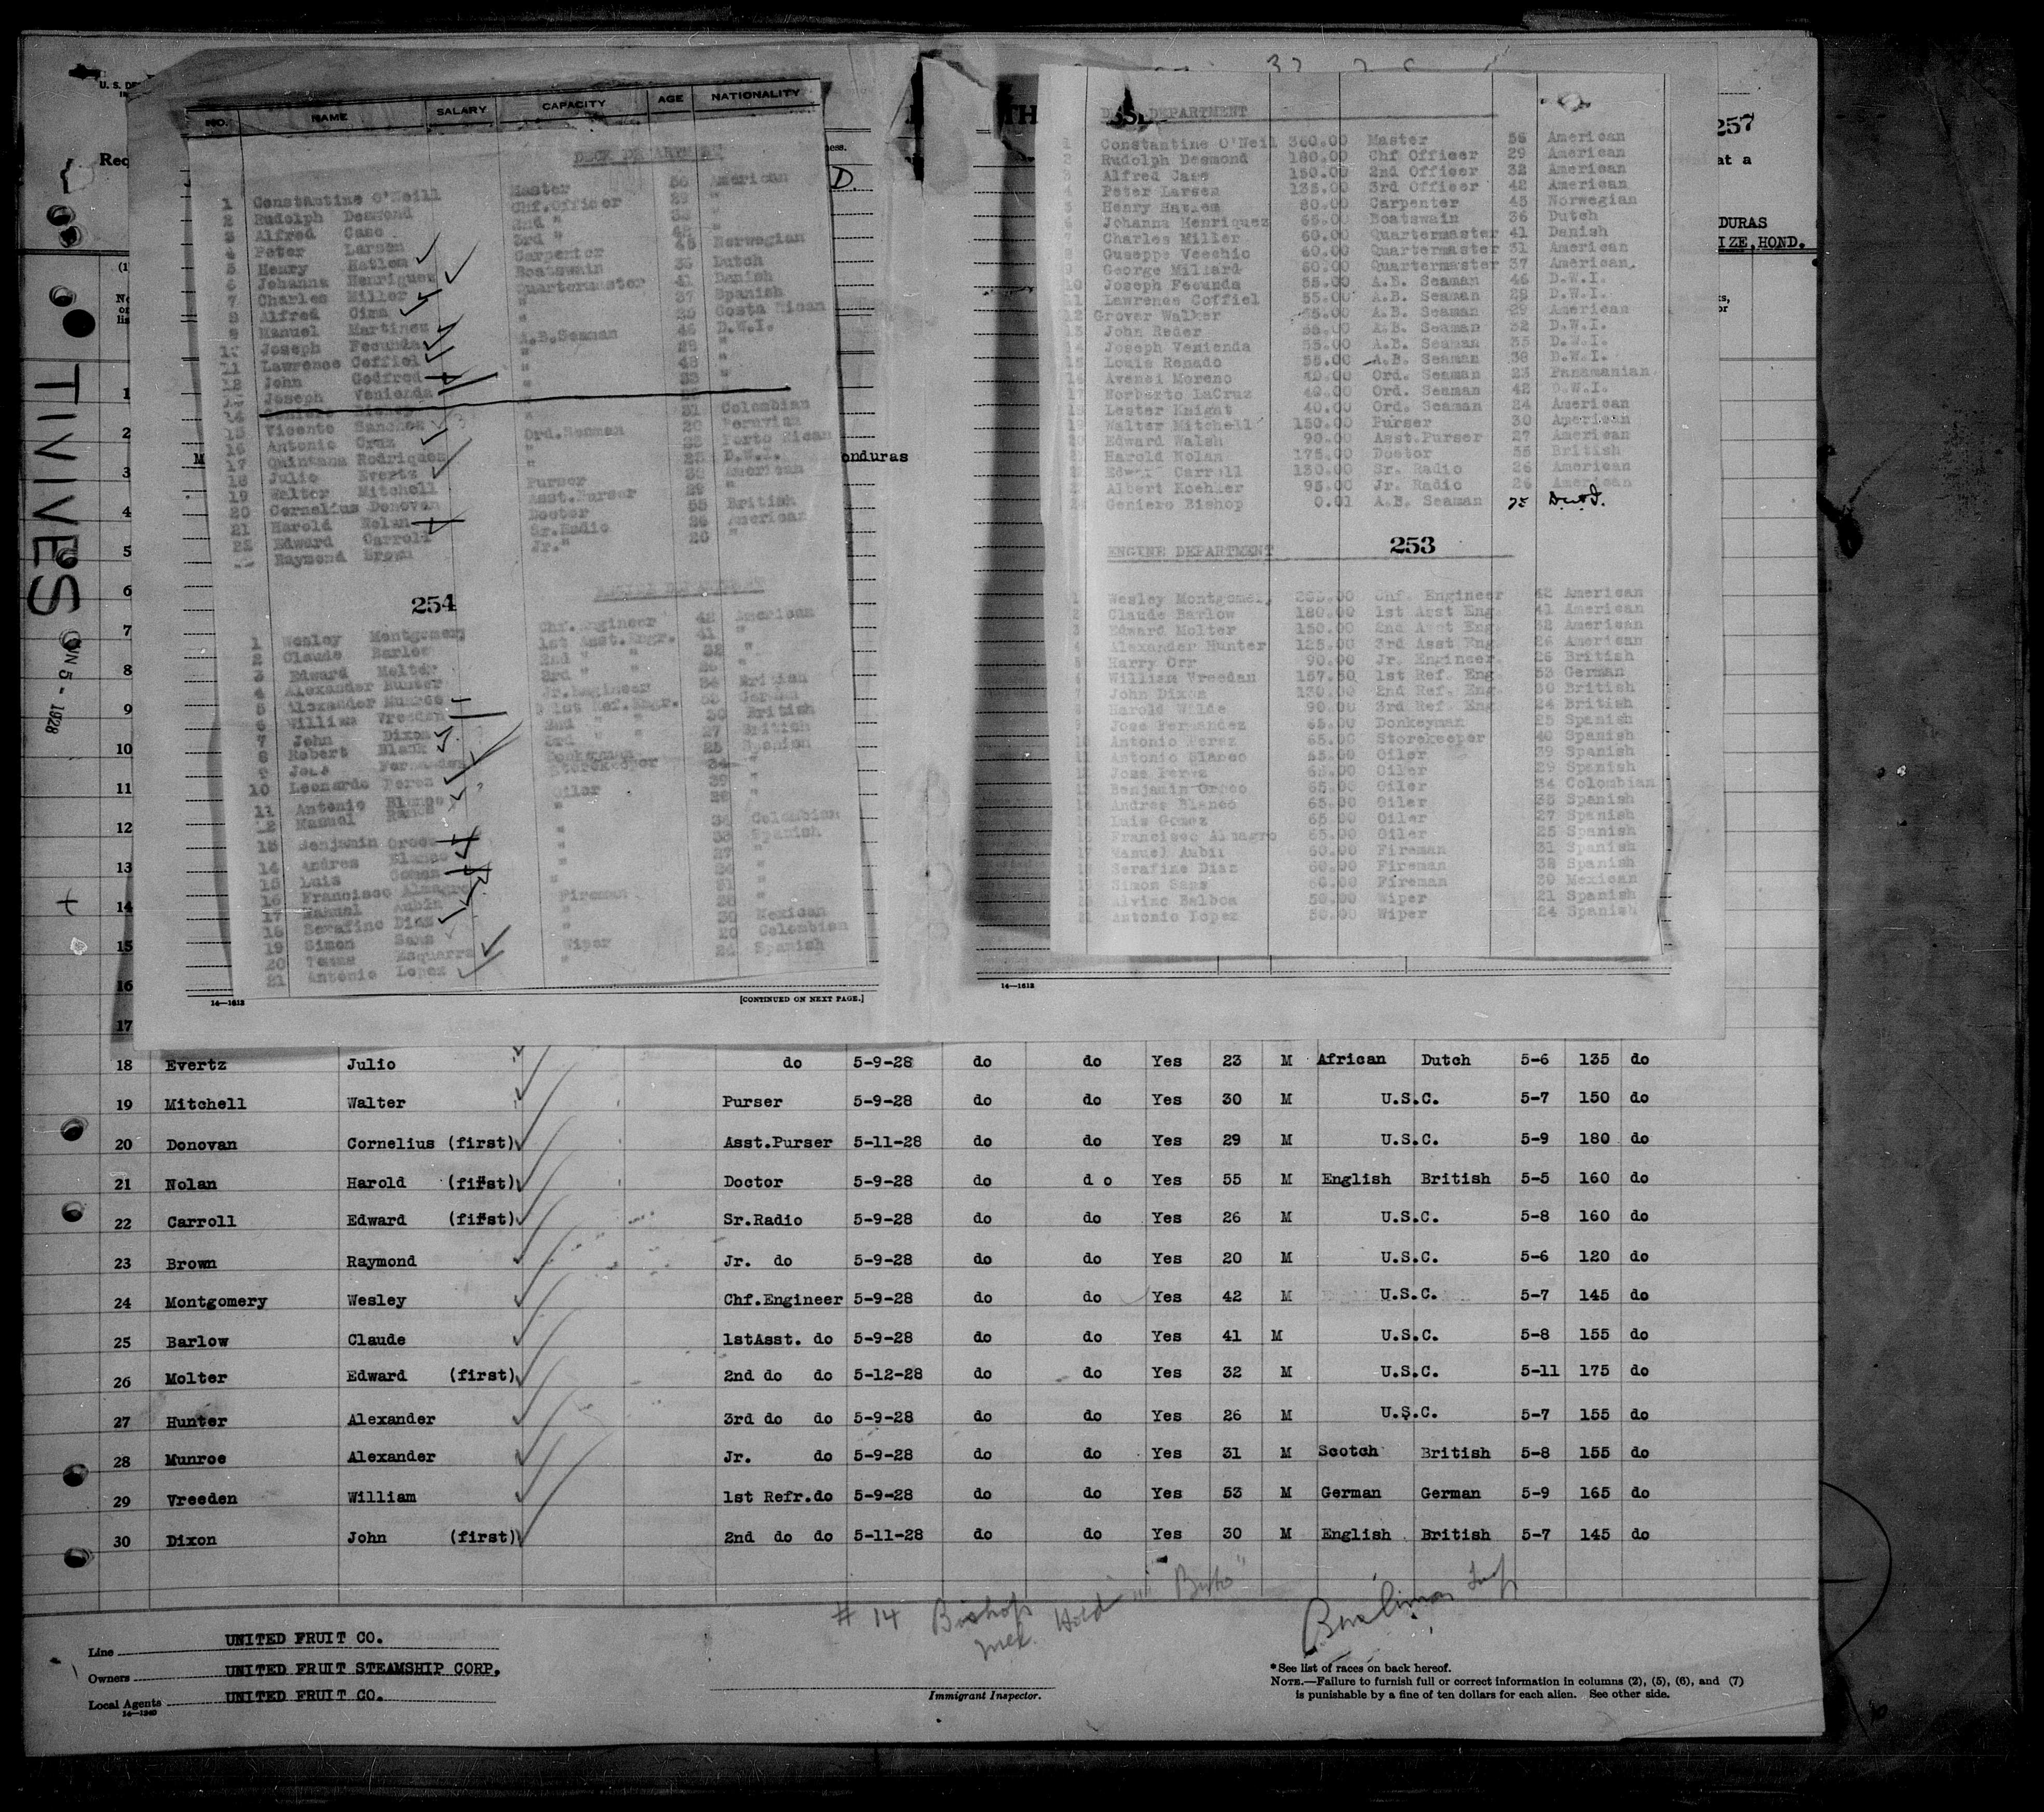 U. S. DE
Rec
TIVIVES
JUN 5 - 1928
NO. NAME SALARY CAPACITY AGE NATIONALITY
DECK DEPARTMENT
1 Constantine O'Neill Master 56 American
2 Rudolph Desmond Chf.Officer 29 "
3 Alfred Case 2nd " 32 "
4 Peter Larsen 3rd " 42 "
5 Henry Hatlem Carpenter 45 Norwegian
6 Johanna Henriquez Boatswain 36 Dutch
7 Charles Miller Quartermaster 41 Danish
8 Alfred " 37 Spanish
9 Manuel Martinez " Costa Rican
10 Joseph Fecunda A.B.Seaman 46 D.W.I.
11 Lawrence Coffiel " 28 "
12 John Godfred "
Joseph Venienda "
14
15 Vicente Sanchez " 31 Colombian
16 Antonio Cruz Ord.Seaman Peruvian
17 Quintana Rodriquez " Porto Rican
18 Julio Evertz " 23 D.W.I.
19 Walter Mitchell Purser 30 American
20 Cornelius Donovan Asst.Purser 29 "
21 Harold Nolan Doctor 55 British
22 Edward Carroll Sr.Radio 26 American
Raymond Brown Jr." 20 "
254
1 Wesley Montgomery Chf.Engineer 42 American
2 Claude Barlow 1st Asst.Engr. 41 "
3 Edward Molter 2nd " " 32 "
4 Alexander Hunter 3rd " " 26 "
5 Alexander Munroe Jr.Engineer British
6 William Vreeden 1st Ref.Engr. 53 German
7 John Dixon 2nd " " 30 British
8 Robert Black 3rd " " 27 British
9 Jose Fernandez Donkeyman 25 Spanish
10 Leonardo Perez Storekeeper 34 "
11 Antonio Blanco Oiler 39 "
12 Manuel Ramos "
13 Benjamin Orozo " 34 Colombian
14 Andres Blanco " 35 Spanish
15 Luis Gomez " 27 "
16 Francisco Almagro "
17 Manuel Aubin Fireman 31 "
18 Serafino Dias " "
19 Simon Sans " 30 Mexican
20 Esquarra Wiper 20 Colombian
21 Antonio Lopez " 24 Spanish
14—1613 [CONTINUED ON NEXT PAGE.]
DECK DEPARTMENT
1 Constantine O'Neil 360.00 Master 56 American
2 Rudolph Desmond 180.00 Chf Officer 29 American
3 Alfred Case 150.00 2nd Officer 32 American
4 Peter Larsen 135.00 3rd Officer 42 American
5 Henry Hatlem 80.00 Carpenter 45 Norwegian
6 Johanna Henriquez 65.00 Boatswain 36 Dutch
Charles Miller 60.00 Quartermaster 41 Danish
8 Guseppe Vecchio 60.00 Quartermaster 31 American
9 George Millard 60.00 Quartermaster 37 American
10 Joseph Fecunda 55.00 A.B. Seaman 46 D.W.I.
11 Lawrence Coffiel 55.00 A.B. Seaman 28 D.W.I.
12 Grover Walker 55.00 A.B. Seaman 29 American
13 John Reder 55.00 A.B. Seaman 32 D.W.I.
14 Joseph Venienda 55.00 A.B. Seaman 35 D.W.I.
15 Louis Renado 55.00 A.B. Seaman 38 D.W.I.
16 Avensi Moreno 40.00 Ord. Seaman 23 Panamanian
17 Norberto LaCruz 40.00 Ord. Seaman 42 D.W.I.
18 Lester Knight 40.00 Ord. Seaman 24 American
19 Walter Mitchell 150.00 Purser 30 American
20 Edward Walsh 90.00 Asst.Purser 27 American
21 Harold Nolan 175.00 Doctor 55 British
Edward Carroll 130.00 Sr. Radio 26 American
Albert Koehler 95.00 Jr. Radio 26 American
24 Geniero Bishop 0.01 A.B. Seaman D.W.I.
253
ENGINE DEPARTMENT
1 Wesley Montgomery Chf. Engineer 42 American
2 Claude Barlow 180.00 1st Asst Eng. 41 American
3 Edward Molter 150.00 2nd Asst Eng. 32 American
4 Alexander Hunter 125.00 3rd Asst Eng. 26 American
5 Harry Orr 90.00 Jr. Engineer. 26 British
6 William Vreedan 157.50 1st Ref. Eng. 53 German
7 John Dixon 130.00 2nd Ref. Eng. 30 British
8 Harold Wilde 90.00 3rd Ref. Eng. 24 British
9 Jose Fernandez 65.00 Donkeyman 25 Spanish
10 Antonio Perez 65.00 Storekeeper 40 Spanish
11 Antonio Blanco 65.00 Oiler 39 Spanish
12 Jose Perez 65.00 Oiler 29 Spanish
13 Benjamin Orozo 65.00 Oiler 34 Colombian
14 Andres Blanco 65.00 Oiler 35 Spanish
15 Luis Gomez 65.00 Oiler 27 Spanish
16 Francisco Almagro 65.00 Oiler 25 Spanish
17 Manuel Aubin 60.00 Fireman 31 Spanish
18 Serafino Dias 60.00 Fireman 38 Spanish
19 Simon Sans 60.00 Fireman 30 Mexican
20 Alvino Balboa 50.00 Wiper 21 Spanish
21 Antonio Lopez 50.00 Wiper 24 Spanish
14—1613
257
at a
DURAS
IZE, HOND.
onduras
D
1
2
3
4
5
6
7
8
9
10
11
12
13
14
15
16
17
18 Evertz Julio do 5-9-28 do do Yes 23 M African Dutch 5-6 135 do
19 Mitchell Walter Purser 5-9-28 do do Yes 30 M U.S.C. 5-7 150 do
20 Donovan Cornelius (first) Asst.Purser 5-11-28 do do Yes 29 M U.S.C. 5-9 180 do
21 Nolan Harold (first) Doctor 5-9-28 do d o Yes 55 M English British 5-5 160 do
22 Carroll Edward (first) Sr.Radio 5-9-28 do do Yes 26 M U.S.C. 5-8 160 do
23 Brown Raymond Jr. do 5-9-28 do do Yes 20 M U.S.C. 5-6 120 do
24 Montgomery Wesley Chf.Engineer 5-9-28 do do Yes 42 M U.S.C. 5-7 145 do
25 Barlow Claude 1stAsst. do 5-9-28 do do Yes 41 M U.S.C. 5-8 155 do
26 Molter Edward (first) 2nd do do 5-12-28 do do Yes 32 M U.S.C. 5-11 175 do
27 Hunter Alexander 3rd do do 5-9-28 do do Yes 26 M U.S.C. 5-7 155 do
28 Munroe Alexander Jr. do 5-9-28 do do Yes 31 M Scotch British 5-8 155 do
29 Vreeden William 1st Refr.do 5-9-28 do do Yes 53 M German German 5-9 165 do
30 Dixon John (first) 2nd do do 5-11-28 do do Yes 30 M English British 5-7 145 do
# 14 Bishop Hold
Line UNITED FRUIT CO.
Owners UNITED FRUIT STEAMSHIP CORP.
Local Agents UNITED FRUIT CO.
14—1240
Immigrant Inspector.
*See list of races on back hereof.
NOTE.—Failure to furnish full or correct information in columns (2), (5), (6), and (7)
is punishable by a fine of ten dollars for each alien. See other side.